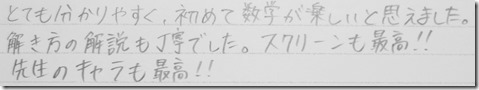 とても分かりやすく、初めて数学が楽しいと思えました。
解き方の解説も丁寧でした。スクリーンも最高!!
先生のキャラも最高!!